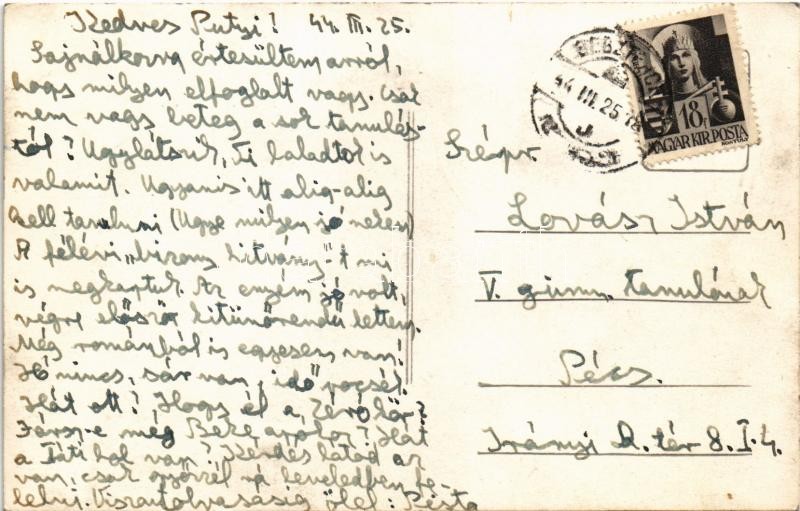 Kedves Putyi! 44. III. 25.
Sajnálkozva értesültem arról,
hogy milyen elfoglalt vagy. Csak
nem vagy beteg a sok tanulás-
tól? Úgylátszik, Ti haladtok is
valamit. Ugyanis itt alig-alig
kell tanulni (Ugye milyen jó nekem)
A félévi „bizony hitvány"-t mi
is megkaptuk. Az enyém jó volt,
végre először kitünőrendű lettem.
Még románból is egyesem van!
Hó nincs, sár van, idő pocsék.
Hát ott? Hogy él a
Jársz-e még Hát
a Táti hol van? Kérdés látod az
van, csak győzzél rá leveledben fe-
lelni. Viszontolvasásig ölel: Pista
44 III. 25
18f
MAGYAR KIR. POSTA
Szépr.
Lovász István
V. gimn. tanulónak
Pécs.
Irányi D. tér 8. I. 4.